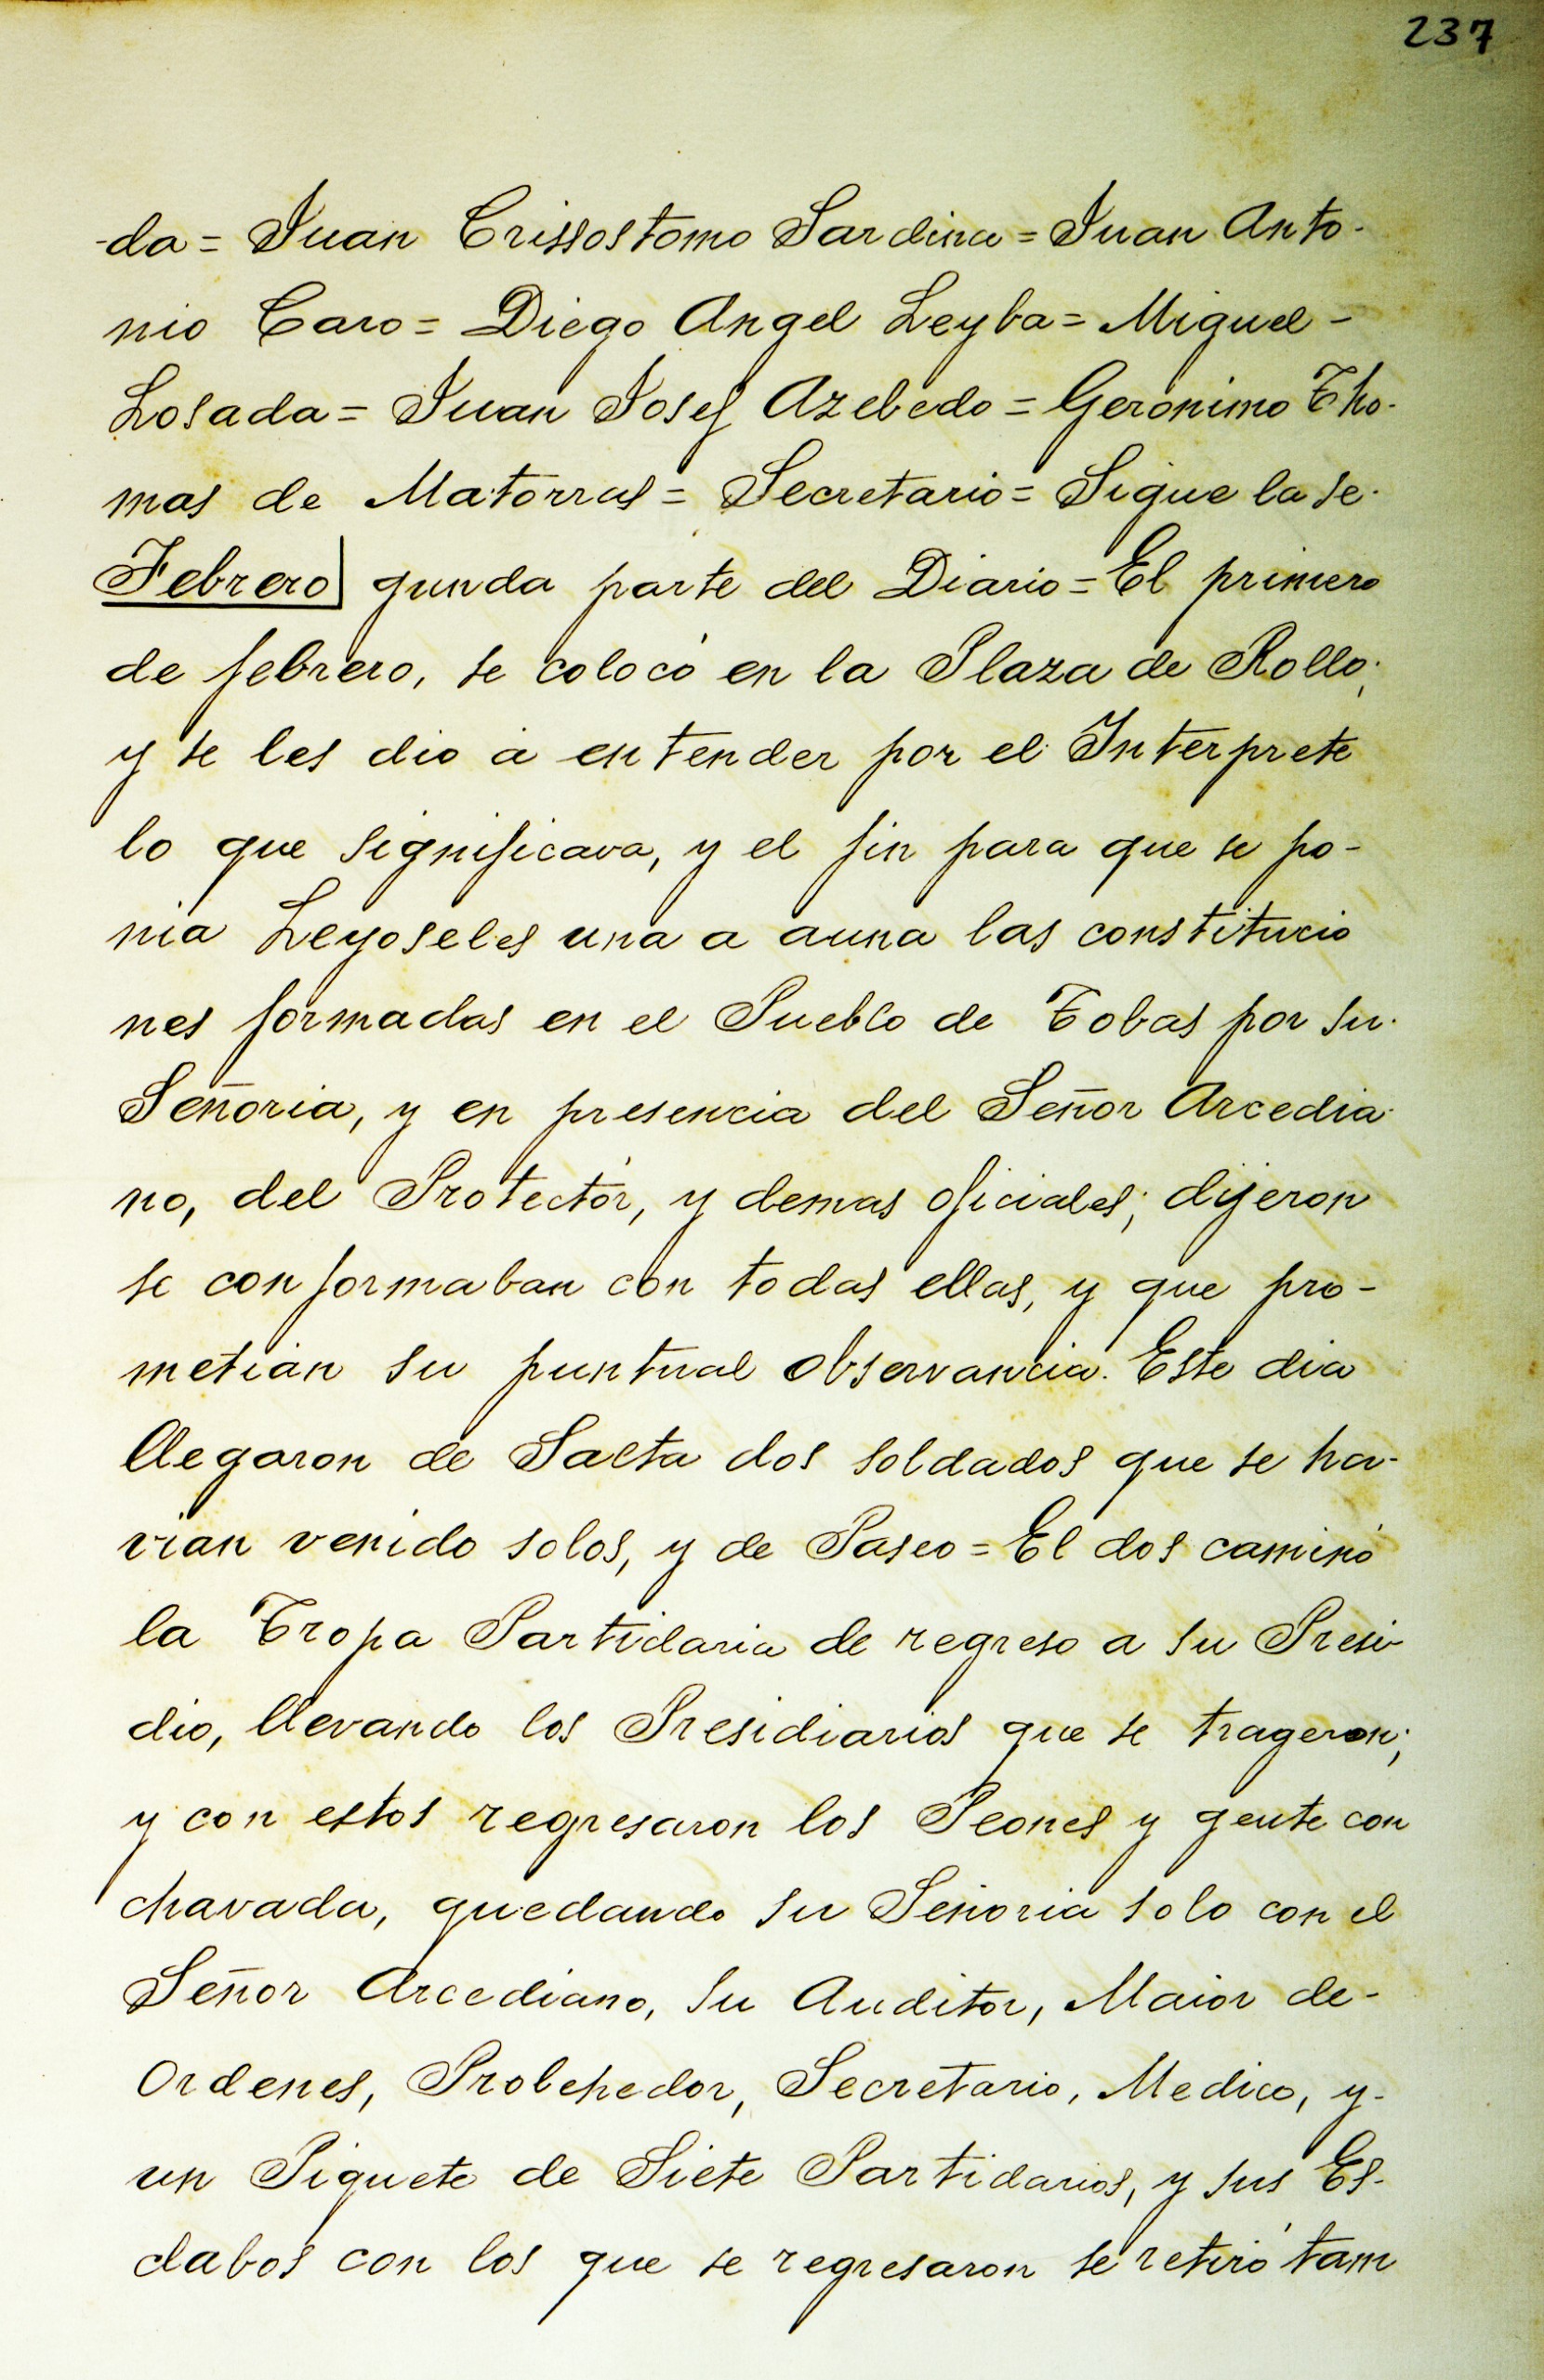 237
-da = Juan Crissostomo Sardina = Juan Anto-
nio Caro = Diego Angel Leyba = Miguel -
Losada = Juan Josef Azebedo = Geronimo Tho-
mas de Matorras = Secretario = Sigue la se-
Febrero gunda parte del Diario = El primero
de febrero, se colocó en la Plaza de Rollo;
y se les dio a entender por el Interprete
lo que significava, y el fin para que se po-
nia Leyoseles una a auna las constitucio
nes formadas en el Pueblo de Tobas por su-
Señoria, y en presencia del Señor Arcedia-
no, del Protectór, y demas oficiales; dijeron
se conformaban con todas ellas, y que pro-
metian su puntual observancia. Este dia
llegaron de Salta dos soldados que se ha-
vian venido solos, y de Paseo = El dos caminó
la Tropa Partidaria de regreso a su Presi-
dio, llevando los Presidiarios que se trageron;
y con estos regresaron los Peones y gente con
chavada, quedando su Señoria solo con el
Señor Arcediano, su Auditor, Maior de-
Ordenes, Probehedor, Secretario, Medico, y-
un Piquete de Siete Partidarios, y sus Es-
clabos con los que se regresaron se retiró tam